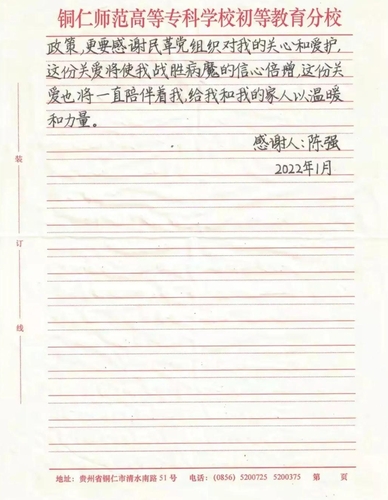 铜仁师范高等专科学校初等教育分校
政策,更要感谢民革党组织对我的关心和爱护,
这份关爱将使我战胜病魔的信心倍增,这份关
爱也将一直陪伴着我,给我和我的家人以温暖
和力量。
感谢人:陈强
2022年1月
装
订
线
地址:贵州省铜仁市清水南路51号 电话:(0856) 5200725 5200375 第 页